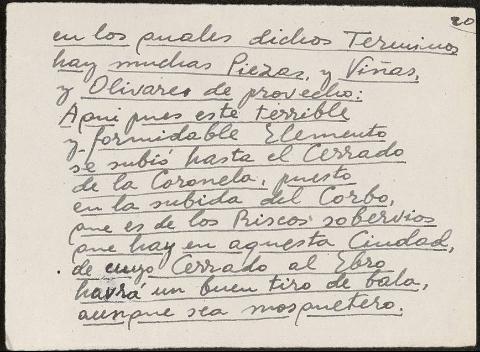 20
en los quales dichos Terminos
hay muchas Piezas, y Viñas,
y Olivares de provecho:
Aqui pues este terrible
y formidable Elemento
se subió hasta el Cerrado
de la Coronela, puesto
en la subida del Corbo,
que es de los Riscos sobervios
que hay en aquesta Ciudad,
de cuyo Cerrado al Ebro
havrá un buen tiro de bala,
aunque sea mosquetero.